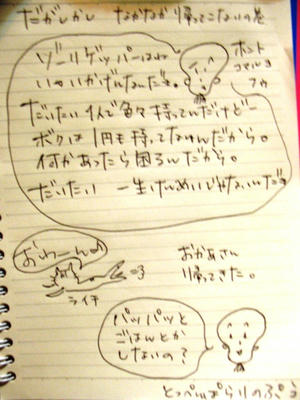 だがしかし なかなか帰ってこないの巻
ゾーリゲッパーはね
いいかげんなんだよ。
ホント
コマルヨ
だいたい1人で色々持ってんだけどー
ボクは1円も持ってなけんだから。
何かあったら困るんだから。
だいたい 一生けんめいじゃないんだよ
おわーん♪
=3
ライチ
おかあさん
帰ってきた。
パッパッと
ごはんとか
しないの?
とっぺんぱらりのぷう